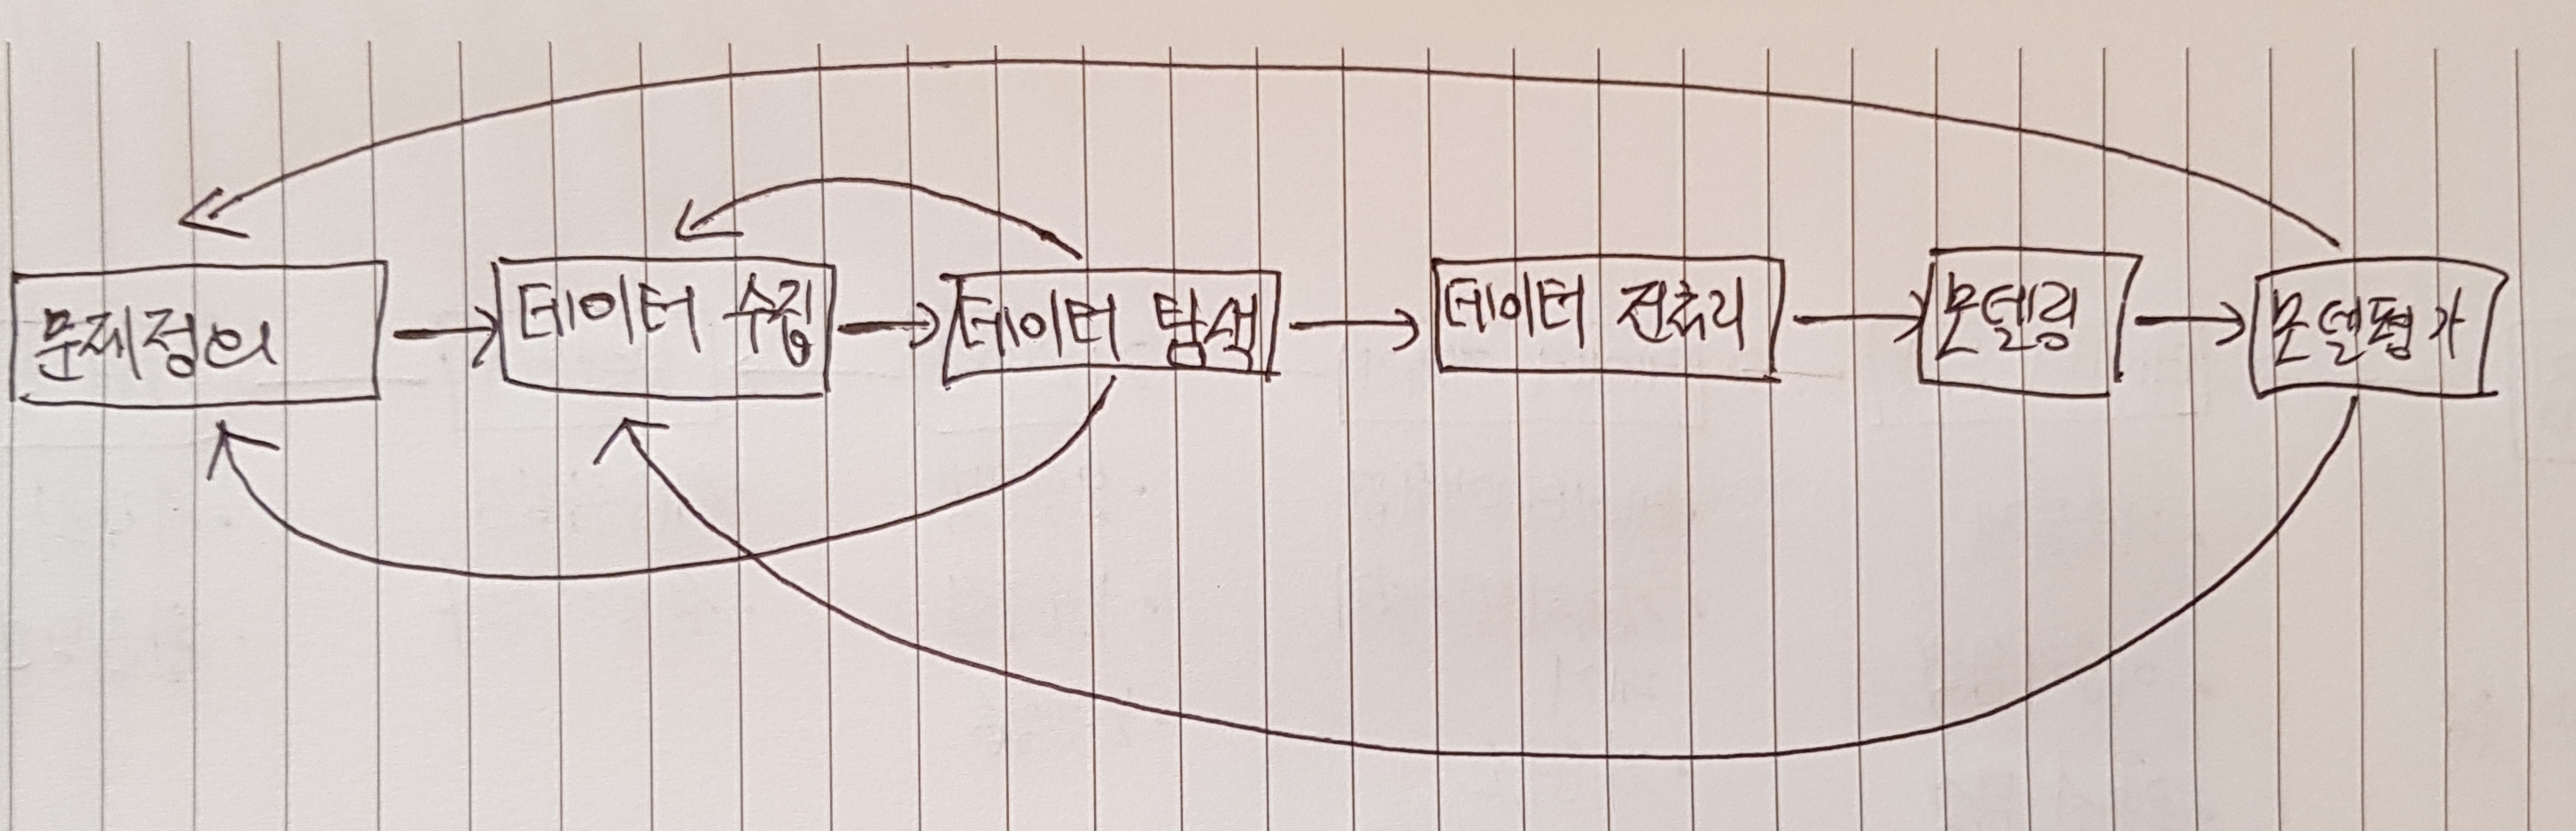 문제정의
데이터 수집
데이터 탐색
데이터 전처리
모델링
모델평가